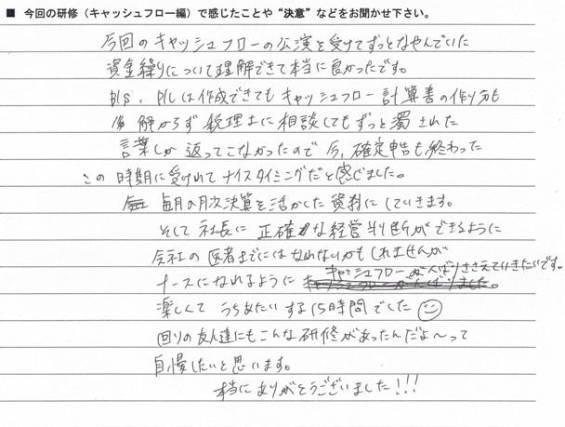 ■ 今回の研修（キャッシュフロー編）で感じたことや“決意”などをお聞かせ下さい。
今回のキャッシュフローの公演を受けてずっとなやんでいた
資金繰りについて理解できて本当に良かったです。
B/S、P/Lは作成できてもキャッシュフロー計算書の作り方も
解からず税理士に相談してもずっと濁された
言葉しか返ってこなかったので今、確定申告も終わった
この時期に受けれてナイスタイミングだと感じました。
毎月の月次決算を活かした資料にしていきます。
そして社長に正確な経営判断ができるように
会社の医者までにはなれないかもしれませんが
ナースになれるようにキャッシュフローがんばりささえていきたいです。
楽しくてうちあたいする15時間でした
回りの友人達にもこんな研修があったんだよ〜って
自慢したいと思います。
本当にありがとうございました!!!